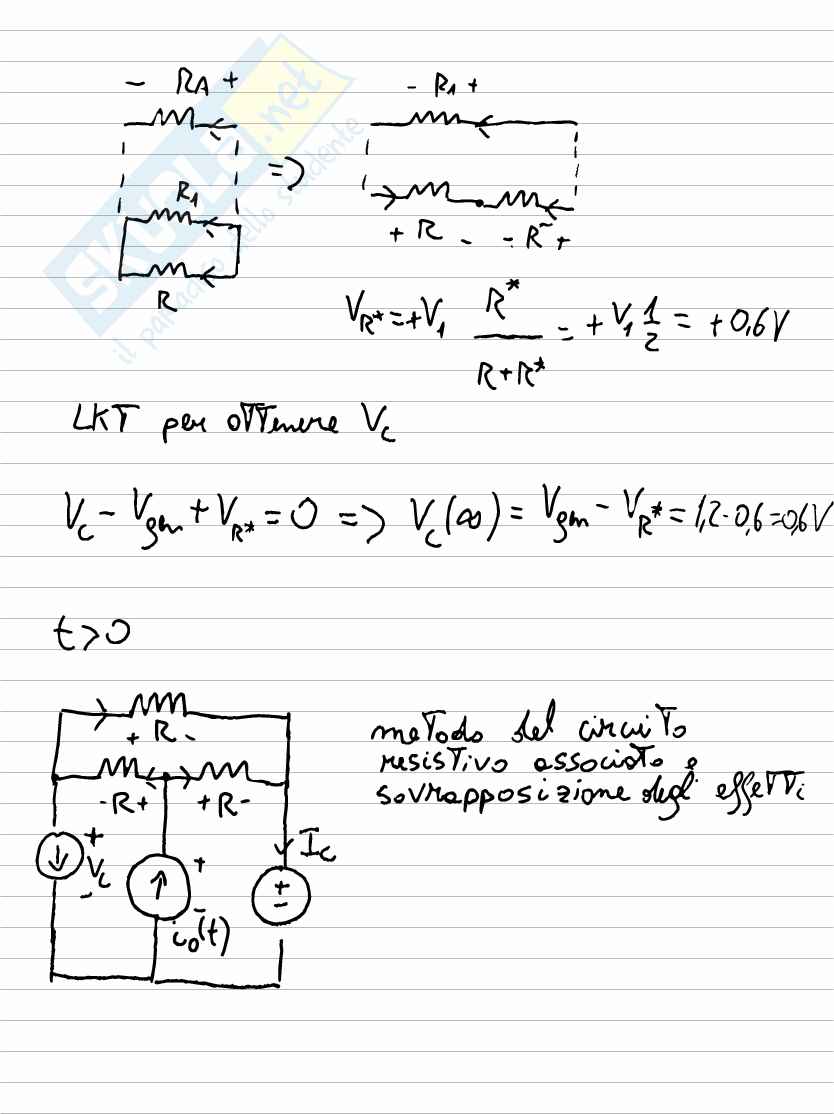 - RA +
- R1 +
=>
R1
R
+ R - - R~ +
VR* = +V1 R*/(R+R*) = +V1 1/2 = +0,6V
LKT per ottenere Vc
Vc - Vgen + VR* = 0 => Vc(∞) = Vgen - VR* = 1,2-0,6=0,6V
t>0
+ R -
-R+ +R-
metodo del circuito
resistivo associato e
sovrapposizione degli effetti
+ Vc -
+ -
Ic
+ -
i0(t)
SKUOLA.net
il paradiso dello studente